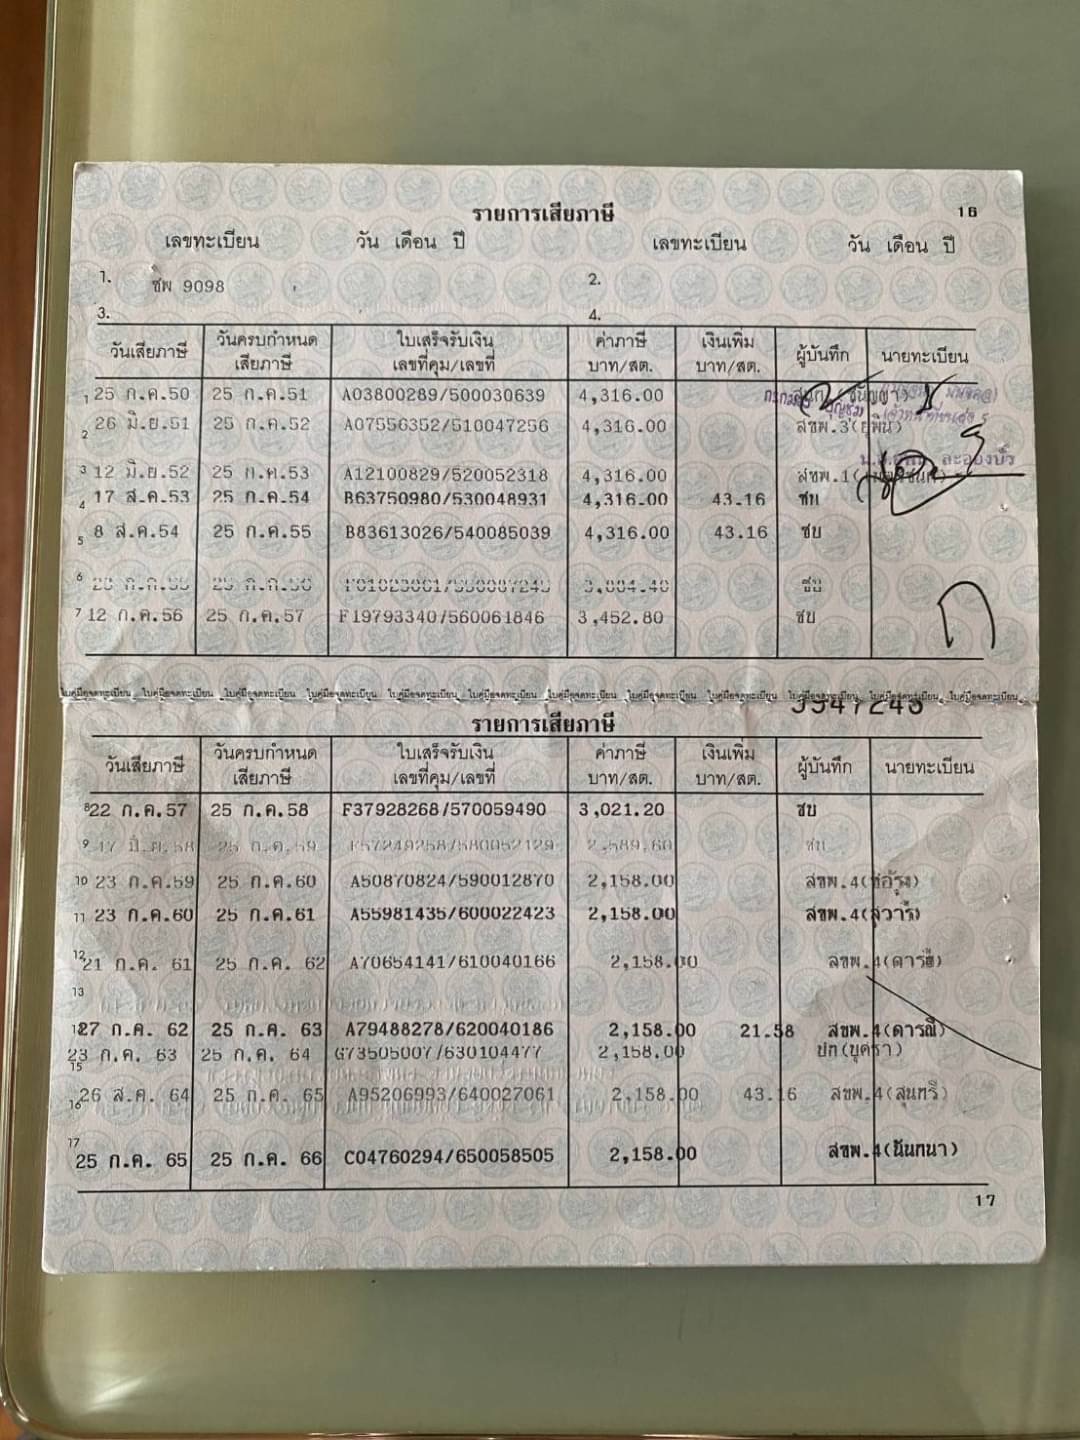 รายการเสียภาษี 16
เลขทะเบียน วัน เดือน ปี เลขทะเบียน วัน เดือน ปี
1. ชพ 9098 2.
3. 4.
วันเสียภาษี วันครบกำหนดเสียภาษี ใบเสร็จรับเงิน เลขที่คุม/เลขที่ ค่าภาษี บาท/สต. เงินเพิ่ม บาท/สต. ผู้บันทึก นายทะเบียน
1 25 ก.ค.50 25 ก.ค.51 A03800289/500030639 4,316.00
2 26 มิ.ย.51 25 ก.ค.52 A07556352/510047256 4,316.00 สขพ.3(ยุพิน)
3 12 มิ.ย.52 25 ก.ค.53 A12100829/520052318 4,316.00 สขพ.1
4 17 ส.ค.53 25 ก.ค.54 B63750980/530048931 4,316.00 43.16 ชบ
5 8 ส.ค.54 25 ก.ค.55 B83613026/540085039 4,316.00 43.16 ชบ
6 ชบ
7 12 ก.ค.56 25 ก.ค.57 F19793340/560061846 3,452.80 ชบ
ใบคู่มือจดทะเบียน ใบคู่มือจดทะเบียน ใบคู่มือจดทะเบียน ใบคู่มือจดทะเบียน ใบคู่มือจดทะเบียน ใบคู่มือจดทะเบียน ใบคู่มือจดทะเบียน ใบคู่มือจดทะเบียน ใบคู่มือจดทะเบียน ใบคู่มือจดทะเบียน ใบคู่มือจดทะเบียน ใบคู่มือจดทะเบียน
รายการเสียภาษี
วันเสียภาษี วันครบกำหนดเสียภาษี ใบเสร็จรับเงิน เลขที่คุม/เลขที่ ค่าภาษี บาท/สต. เงินเพิ่ม บาท/สต. ผู้บันทึก นายทะเบียน
8 22 ก.ค.57 25 ก.ค.58 F37928268/570059490 3,021.20 ชบ
9 17 มิ.ย.58 25 ก.ค.59 F57249258/580052129 2,589.60 ชบ
10 23 ก.ค.59 25 ก.ค.60 A50870824/590012870 2,158.00 สขพ.4
11 23 ก.ค.60 25 ก.ค.61 A55981435/600022423 2,158.00 สขพ.4
12 21 ก.ค. 61 25 ก.ค. 62 A70654141/610040166 2,158.00 สขพ.4
13
27 ก.ค. 62 25 ก.ค. 63 A79488278/620040186 2,158.00 21.58 สขพ.4(ดารณี)
15 23 ก.ค. 63 25 ก.ค. 64 G73505007/630104477 2,158.00
16 26 ส.ค. 64 25 ก.ค. 65 A95206993/640027061 2,158.00 43.16 สขพ.4(สุนทรี)
17 25 ก.ค. 65 25 ก.ค. 66 C04760294/650058505 2,158.00 สขพ.4(นันทนา)
17